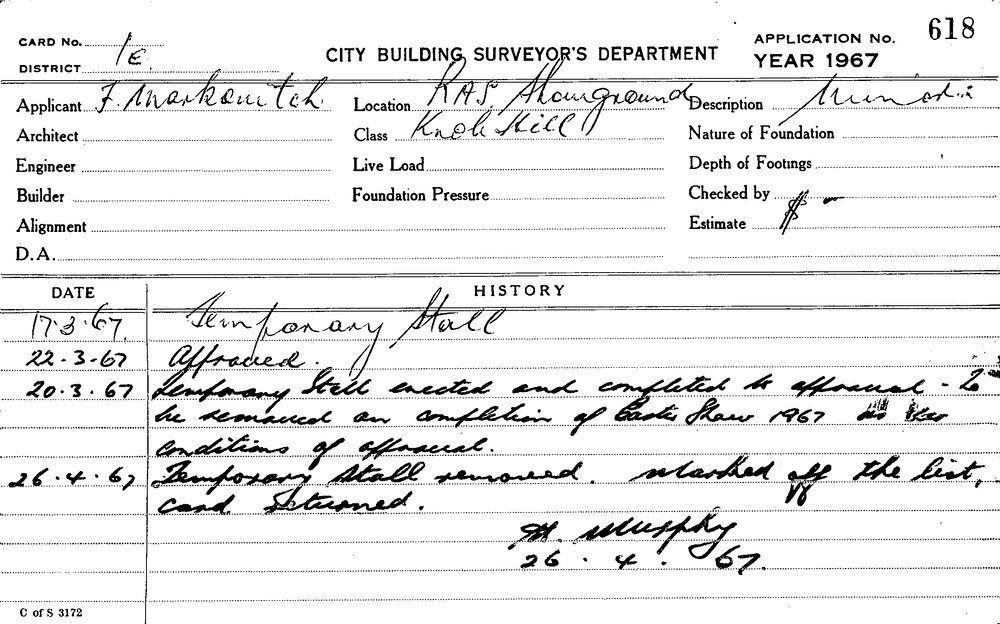 CARD No. 1E
DISTRICT
CITY BUILDING SURVEYOR'S DEPARTMENT
APPLICATION No. 618
YEAR 1967
Applicant F. Markovitch Location RAS. Showground Description
Architect Class Knok Hill Nature of Foundation
Engineer Live Load Depth of Footings
Builder Foundation Pressure Checked by
Alignment Estimate $ -
D.A.
DATE HISTORY
17.3.67. Temporary Stall
22.3.67 Approved.
20.3.67 Temporary Stall erected and completed to approval - To
be removed on completion of Easter Show 1967 as per
conditions of approval.
26.4.67 Temporary Stall removed. Marked off the list,
card returned.
Murphy
26.4.67.
C of S 3172